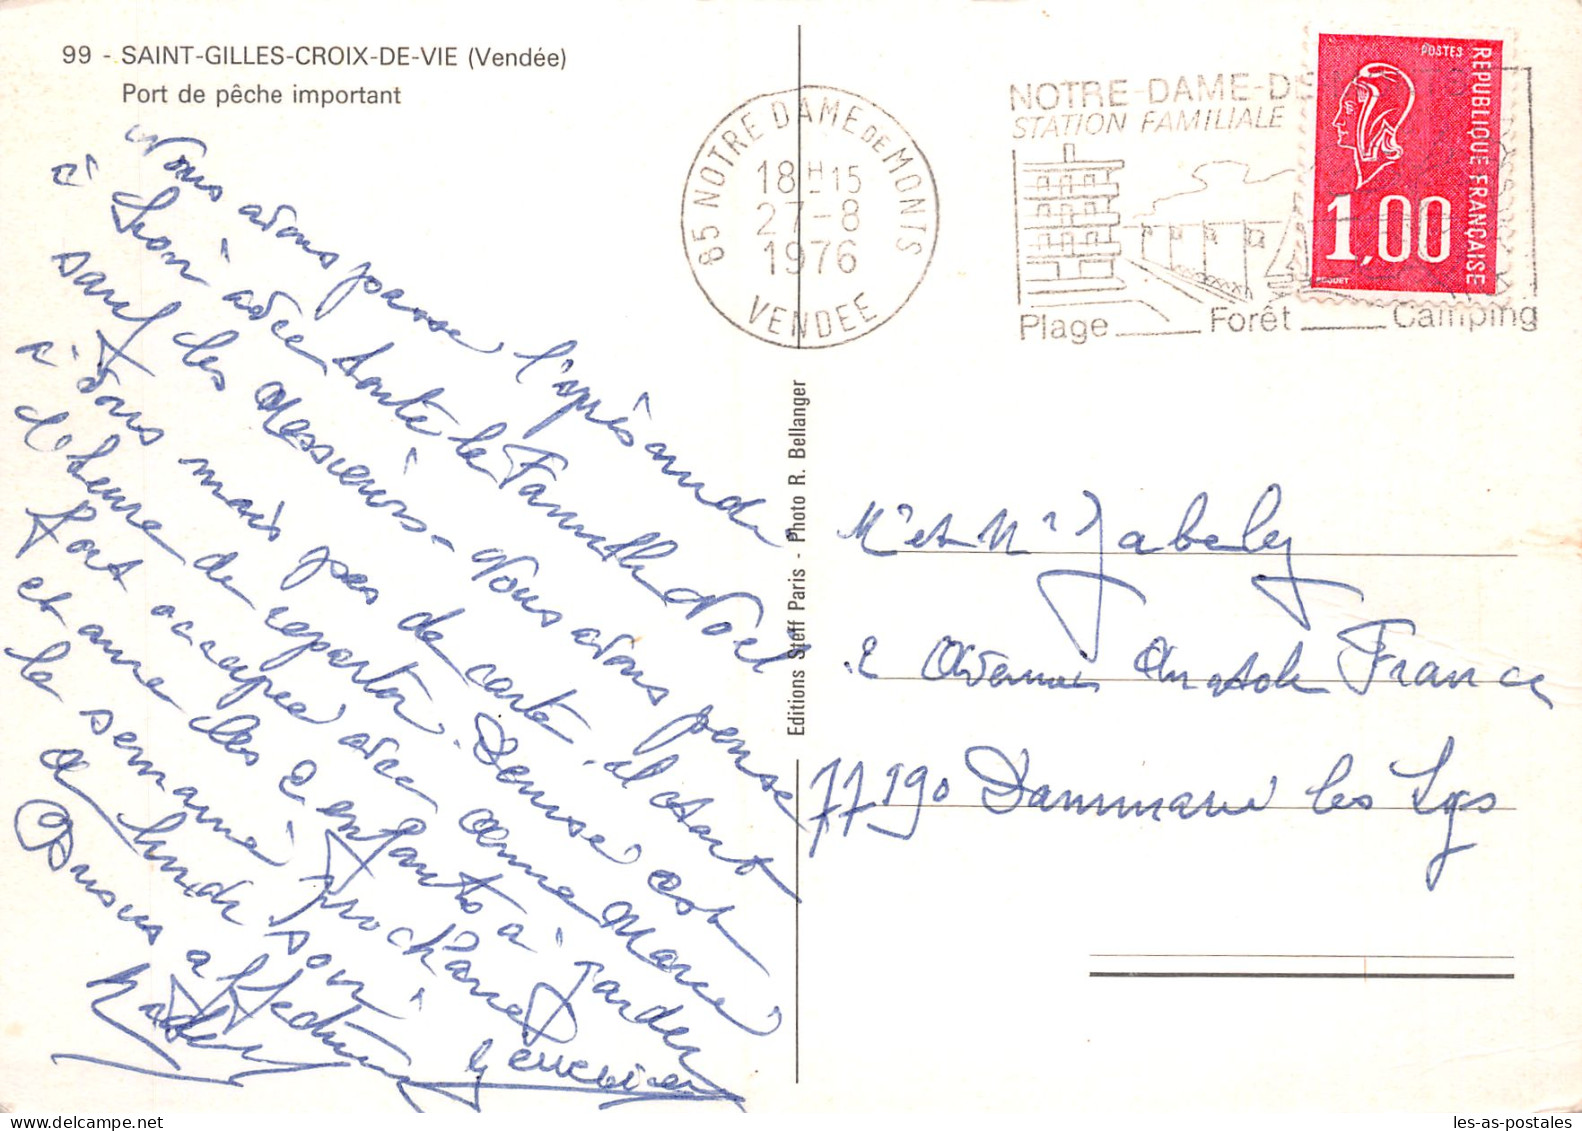 99 - SAINT-GILLES-CROIX-DE-VIE (Vendée)
Port de pêche important
Nous avons passé l'après midi
à Sion avec toute la Famille Noël
sauf les Messieurs - Nous avons pensé
à vous mais pas de carte, il était
l'heure de repartir. Denise est
fort occupée avec Anne Marie
et aura les 2 enfants à garder
la semaine prochaine
à lundi soir
Bisous affectueux
Geneviève
85 NOTRE DAME DE MONTS
18H15
27-8
1976
VENDEE
NOTRE-DAME-DE
STATION FAMILIALE
Plage Forêt Camping
POSTES
REPUBLIQUE FRANÇAISE
1,00
BEQUET
Editions Steff Paris - Photo R. Bellanger
Mr et Mr Jabely
2 Avenue Anatole France
77190 Dammarie les Lys
les-as-postales